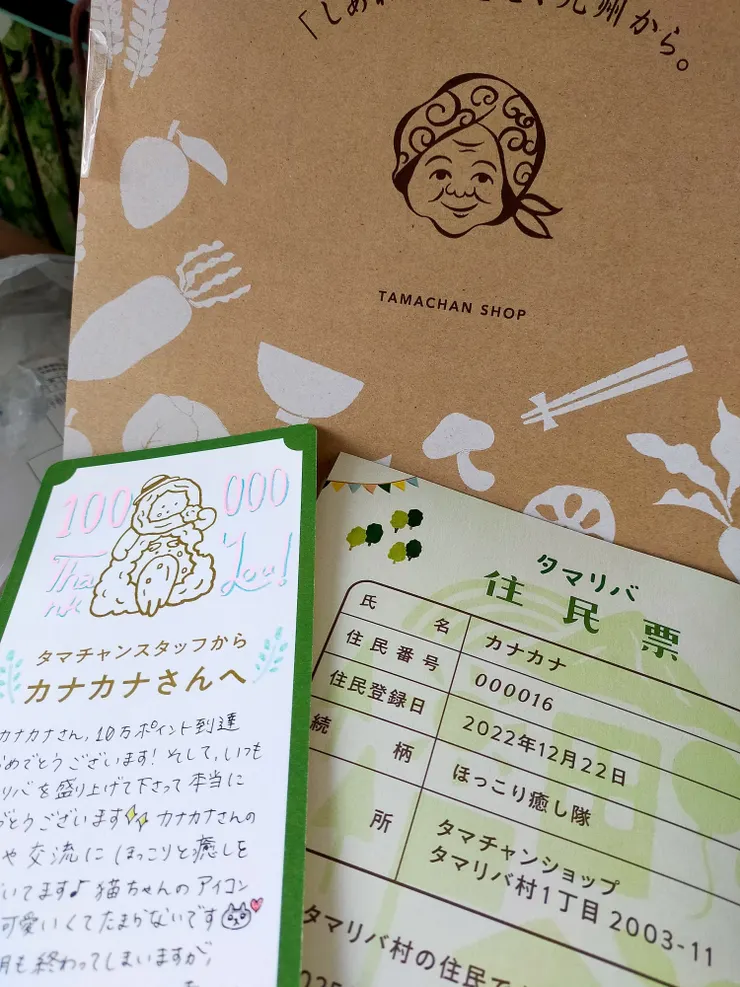 「しあわ
九州から。
TAMACHAN SHOP
100 000
Thank You!
タマチャンスタッフから
カナカナさんへ
カナカナさん、10万ポイント到達
めでとうございます！そして、いつも
リバを盛り上げて下さって本当に
がとうございます✨ カナカナさんの
や交流にほっこりと癒しを
いてます♪猫ちゃんのアイコン
可愛いくてたまらないです
月も終わってしまいますが、
タマリバ
住民票
氏名 カナカナ
住民番号 000016
住民登録日 2022年12月22日
続柄 ほっこり癒し隊
所 タマチャンショップ
タマリバ村1丁目 2003-11
タマリバ村の住民で